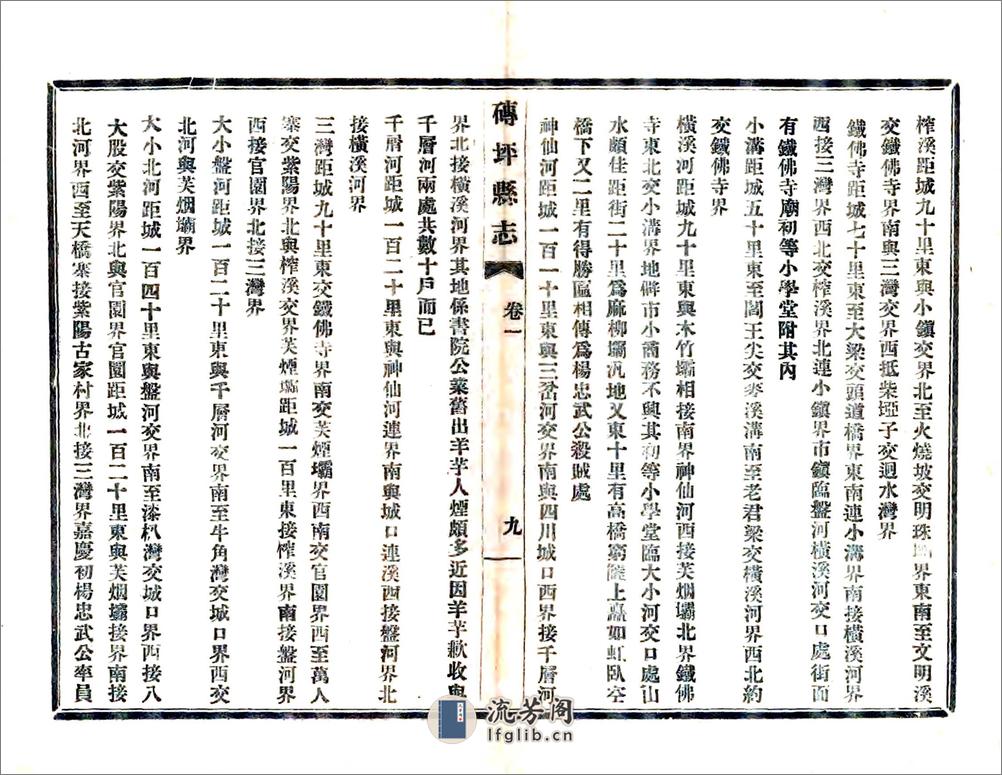 榨溪距城九十里東與小鎮交界北至火燒坡交明珠壩界東南至文明溪
交鐵佛寺界南與三灣交界西抵柴埡子交迴水灣界
鐵佛寺距城七十里東至大梁交頭道橋界東南連小溝界南接橫溪河界
西接三灣界西北交榨溪界北連小鎮界市鎮臨盤河橫溪河交口處街面
有鐵佛寺廟初等小學堂附其內
小溝距城五十里東至閻王尖交溪溝南至老君梁交橫溪河界西北約
交鐵佛寺界
橫溪河距城九十里東與木竹壩相接南界神仙河西接芙烟壩北界鐵佛
寺東北交小溝界地僻市小商務不興其初等小學堂臨大小河交口處山
水頗佳距街二十里爲麻柳壩汛地又東十里有高橋窮隆上矗如虹臥空
橋下又二里有得勝區相傳爲楊忠武公殺賊處
神仙河距城一百一十里東與三岔河交界南與四川城口西界接千層河
磚坪縣志
卷一
九
界北接橫溪河界其地係書院公業舊出羊芋人煙頗多近因羊芋歉收與
千層河兩處共數十戶而已
千層河距城一百二十里東與神仙河連界南與城口連溪西接盤河界北
接橫溪河界
三灣距城九十里東交鐵佛寺界南交芙煙壩界西南交官園界西至萬人
寨交紫陽界北與榨溪交界芙煙壩距城一百里東接榨溪界南接盤河界
西接官園界北接三灣界
大小盤河距城一百二十里東與千層河交界南至牛角灣交城口界西交
北河與芙烟壩界
大小北河距城一百四十里東與盤河交界南至漆朳灣交城口界西接八
大股交紫陽界北與官園界官園距城一百二十里東與芙烟壩接界南接
北河界西至天橋寨接紫陽古家村界北接三灣界嘉慶初楊忠武公率員
流芳阁
lfglib.cn